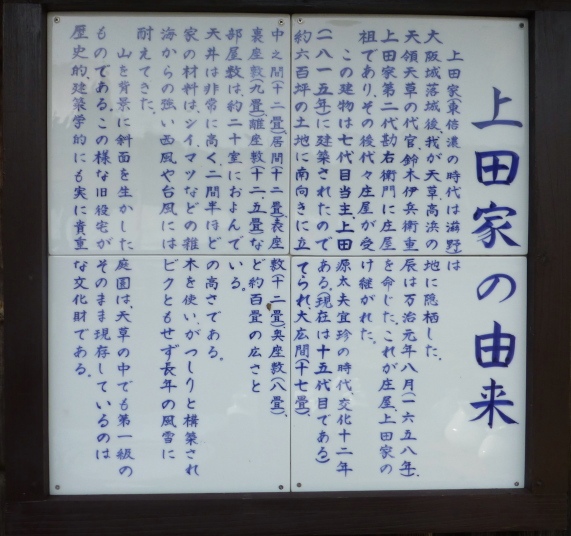 上田家の由来
上田家(東信濃の時代は滋野)は
大阪城落城後、我が天草、高浜の地に隠栖した。
天領天草の代官、鈴木伊兵衛重辰は万治元年八月(一六五八年)、
上田家第二代勘右衛門に庄屋を命じた。これが庄屋、上田家の
祖であり、その後代々庄屋が受け継がれた。
この建物は七代目当主上田源太夫宜珍の時代文化十二年
(一八一五年)に建築されたのである。(現在は十五代目である)
約六百坪の土地に南向きに立てられ、大広間(十七畳)、
中之間(十二畳)、居間(十二畳)、表座敷(十二畳)、奥座敷(八畳)、
裏座敷(九畳)、離座敷(十二、五畳)など約百畳の広さと
部屋数は、約二十室におよんでいる。
天井は非常に高く、二間半ほどの高さである。
家の材料は、シイ、マツなどの雑木を使い、がっしりと構築され
海からの強い西風や台風にはビクともせず長年の風雪に
耐えてきた。
山を背景に斜面を生かした庭園は、天草の中でも第一級の
ものである。この様な旧役宅がそのまま現存しているのは
歴史的、建築学的にも実に貴重な文化財である。